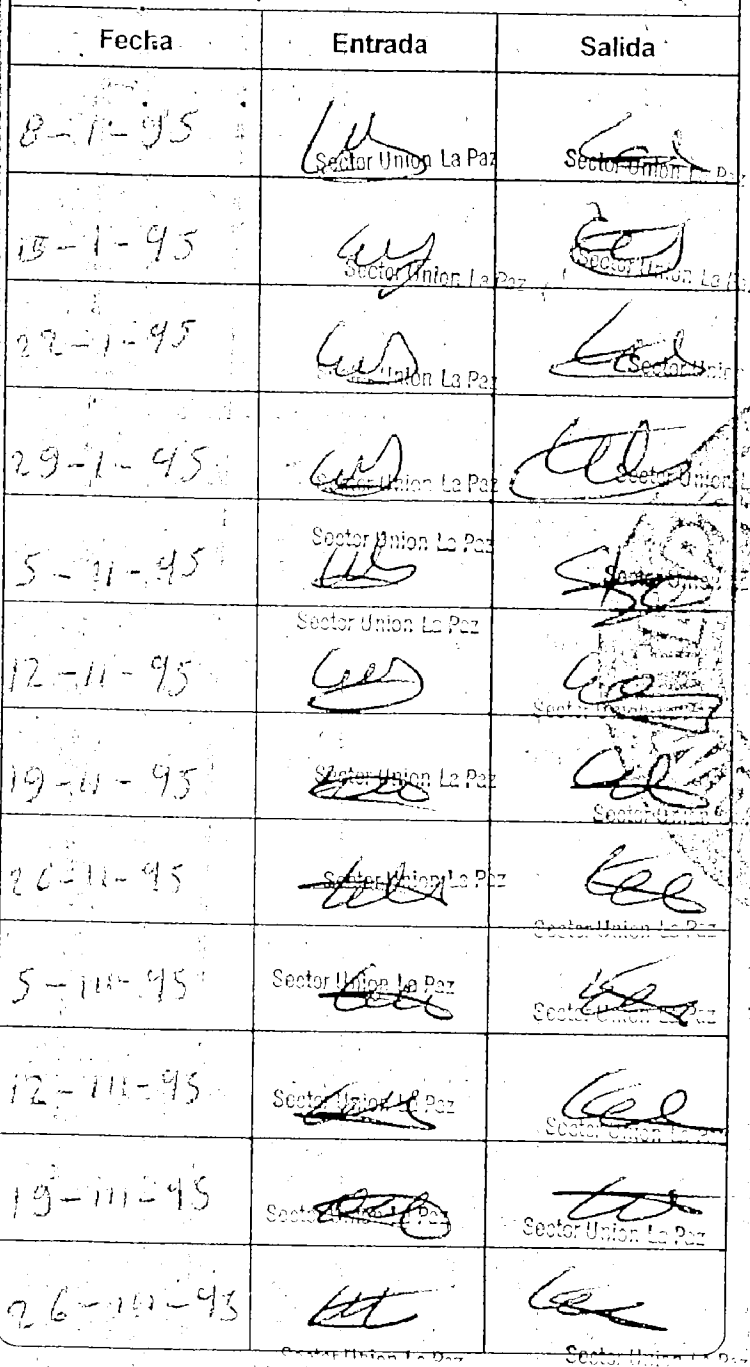 Fecha Entrada Salida
8-1-95 Sector Union La Paz Sector Union La Pa
15-1-95 Sector Union La Paz Sector Union La Pa
22-1-95 Union La Paz Sector Union
29-1-95 Sector Union La Paz Sector Union L
5-11-95 Sector Union La Paz Sector Union
12-11-95 Sector Union La Paz Sector
19-11-95 Sector Union La Paz Sector Union
26-11-95 Sector Union La Paz Sector Union La Paz
5-111-95 Sector Union La Paz Sector Union La Paz
12-111-95 Sector Union La Paz Sector Union La P
19-111-95 Sector La Paz Sector Union La Paz
26-111-95
Sector Union La Paz Sector Union La Paz